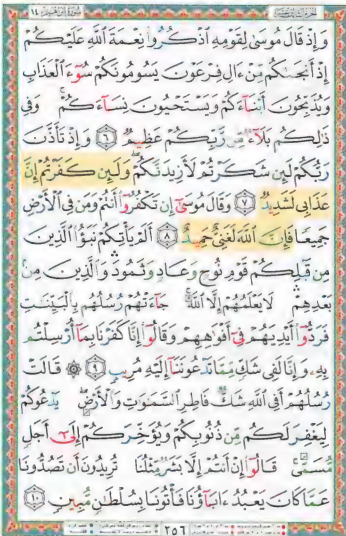 وَإِذْ قَالَ مُوسَىٰ لِقَوْمِهِ ٱذْكُرُوا۟ نِعْمَةَ ٱللَّهِ عَلَيْكُمْ
إِذْ أَنجَىٰكُم مِّنْ ءَالِ فِرْعَوْنَ يَسُومُونَكُمْ سُوٓءَ ٱلْعَذَابِ
وَيُذَبِّحُونَ أَبْنَآءَكُمْ وَيَسْتَحْيُونَ نِسَآءَكُمْ ۚ وَفِى
ذَٰلِكُم بَلَآءٌ مِّن رَّبِّكُمْ عَظِيمٌ ٦ وَإِذْ تَأَذَّنَ
رَبُّكُمْ لَئِن شَكَرْتُمْ لَأَزِيدَنَّكُمْ ۖ وَلَئِن كَفَرْتُمْ إِنَّ
عَذَابِى لَشَدِيدٌ ٧ وَقَالَ مُوسَىٰٓ إِن تَكْفُرُوٓا۟ أَنتُمْ وَمَن فِى ٱلْأَرْضِ
جَمِيعًا فَإِنَّ ٱللَّهَ لَغَنِىٌّ حَمِيدٌ ٨ أَلَمْ يَأْتِكُمْ نَبَؤُا۟ ٱلَّذِينَ
مِن قَبْلِكُمْ قَوْمِ نُوحٍ وَعَادٍ وَثَمُودَ ۛ وَٱلَّذِينَ مِنۢ
بَعْدِهِمْ ۛ لَا يَعْلَمُهُمْ إِلَّا ٱللَّهُ ۚ جَآءَتْهُمْ رُسُلُهُم بِٱلْبَيِّنَٰتِ
فَرَدُّوٓا۟ أَيْدِيَهُمْ فِىٓ أَفْوَٰهِهِمْ وَقَالُوٓا۟ إِنَّا كَفَرْنَا بِمَآ أُرْسِلْتُم
بِهِۦ وَإِنَّا لَفِى شَكٍّ مِّمَّا تَدْعُونَنَآ إِلَيْهِ مُرِيبٍ ٩ ۞ قَالَتْ
رُسُلُهُمْ أَفِى ٱللَّهِ شَكٌّ فَاطِرِ ٱلسَّمَٰوَٰتِ وَٱلْأَرْضِ ۖ يَدْعُوكُمْ
لِيَغْفِرَ لَكُم مِّن ذُنُوبِكُمْ وَيُؤَخِّرَكُمْ إِلَىٰٓ أَجَلٍ
مُّسَمًّى ۚ قَالُوٓا۟ إِنْ أَنتُمْ إِلَّا بَشَرٌ مِّثْلُنَا تُرِيدُونَ أَن تَصُدُّونَا
عَمَّا كَانَ يَعْبُدُ ءَابَآؤُنَا فَأْتُونَا بِسُلْطَٰنٍ مُّبِينٍ ١٠
٢٥٦